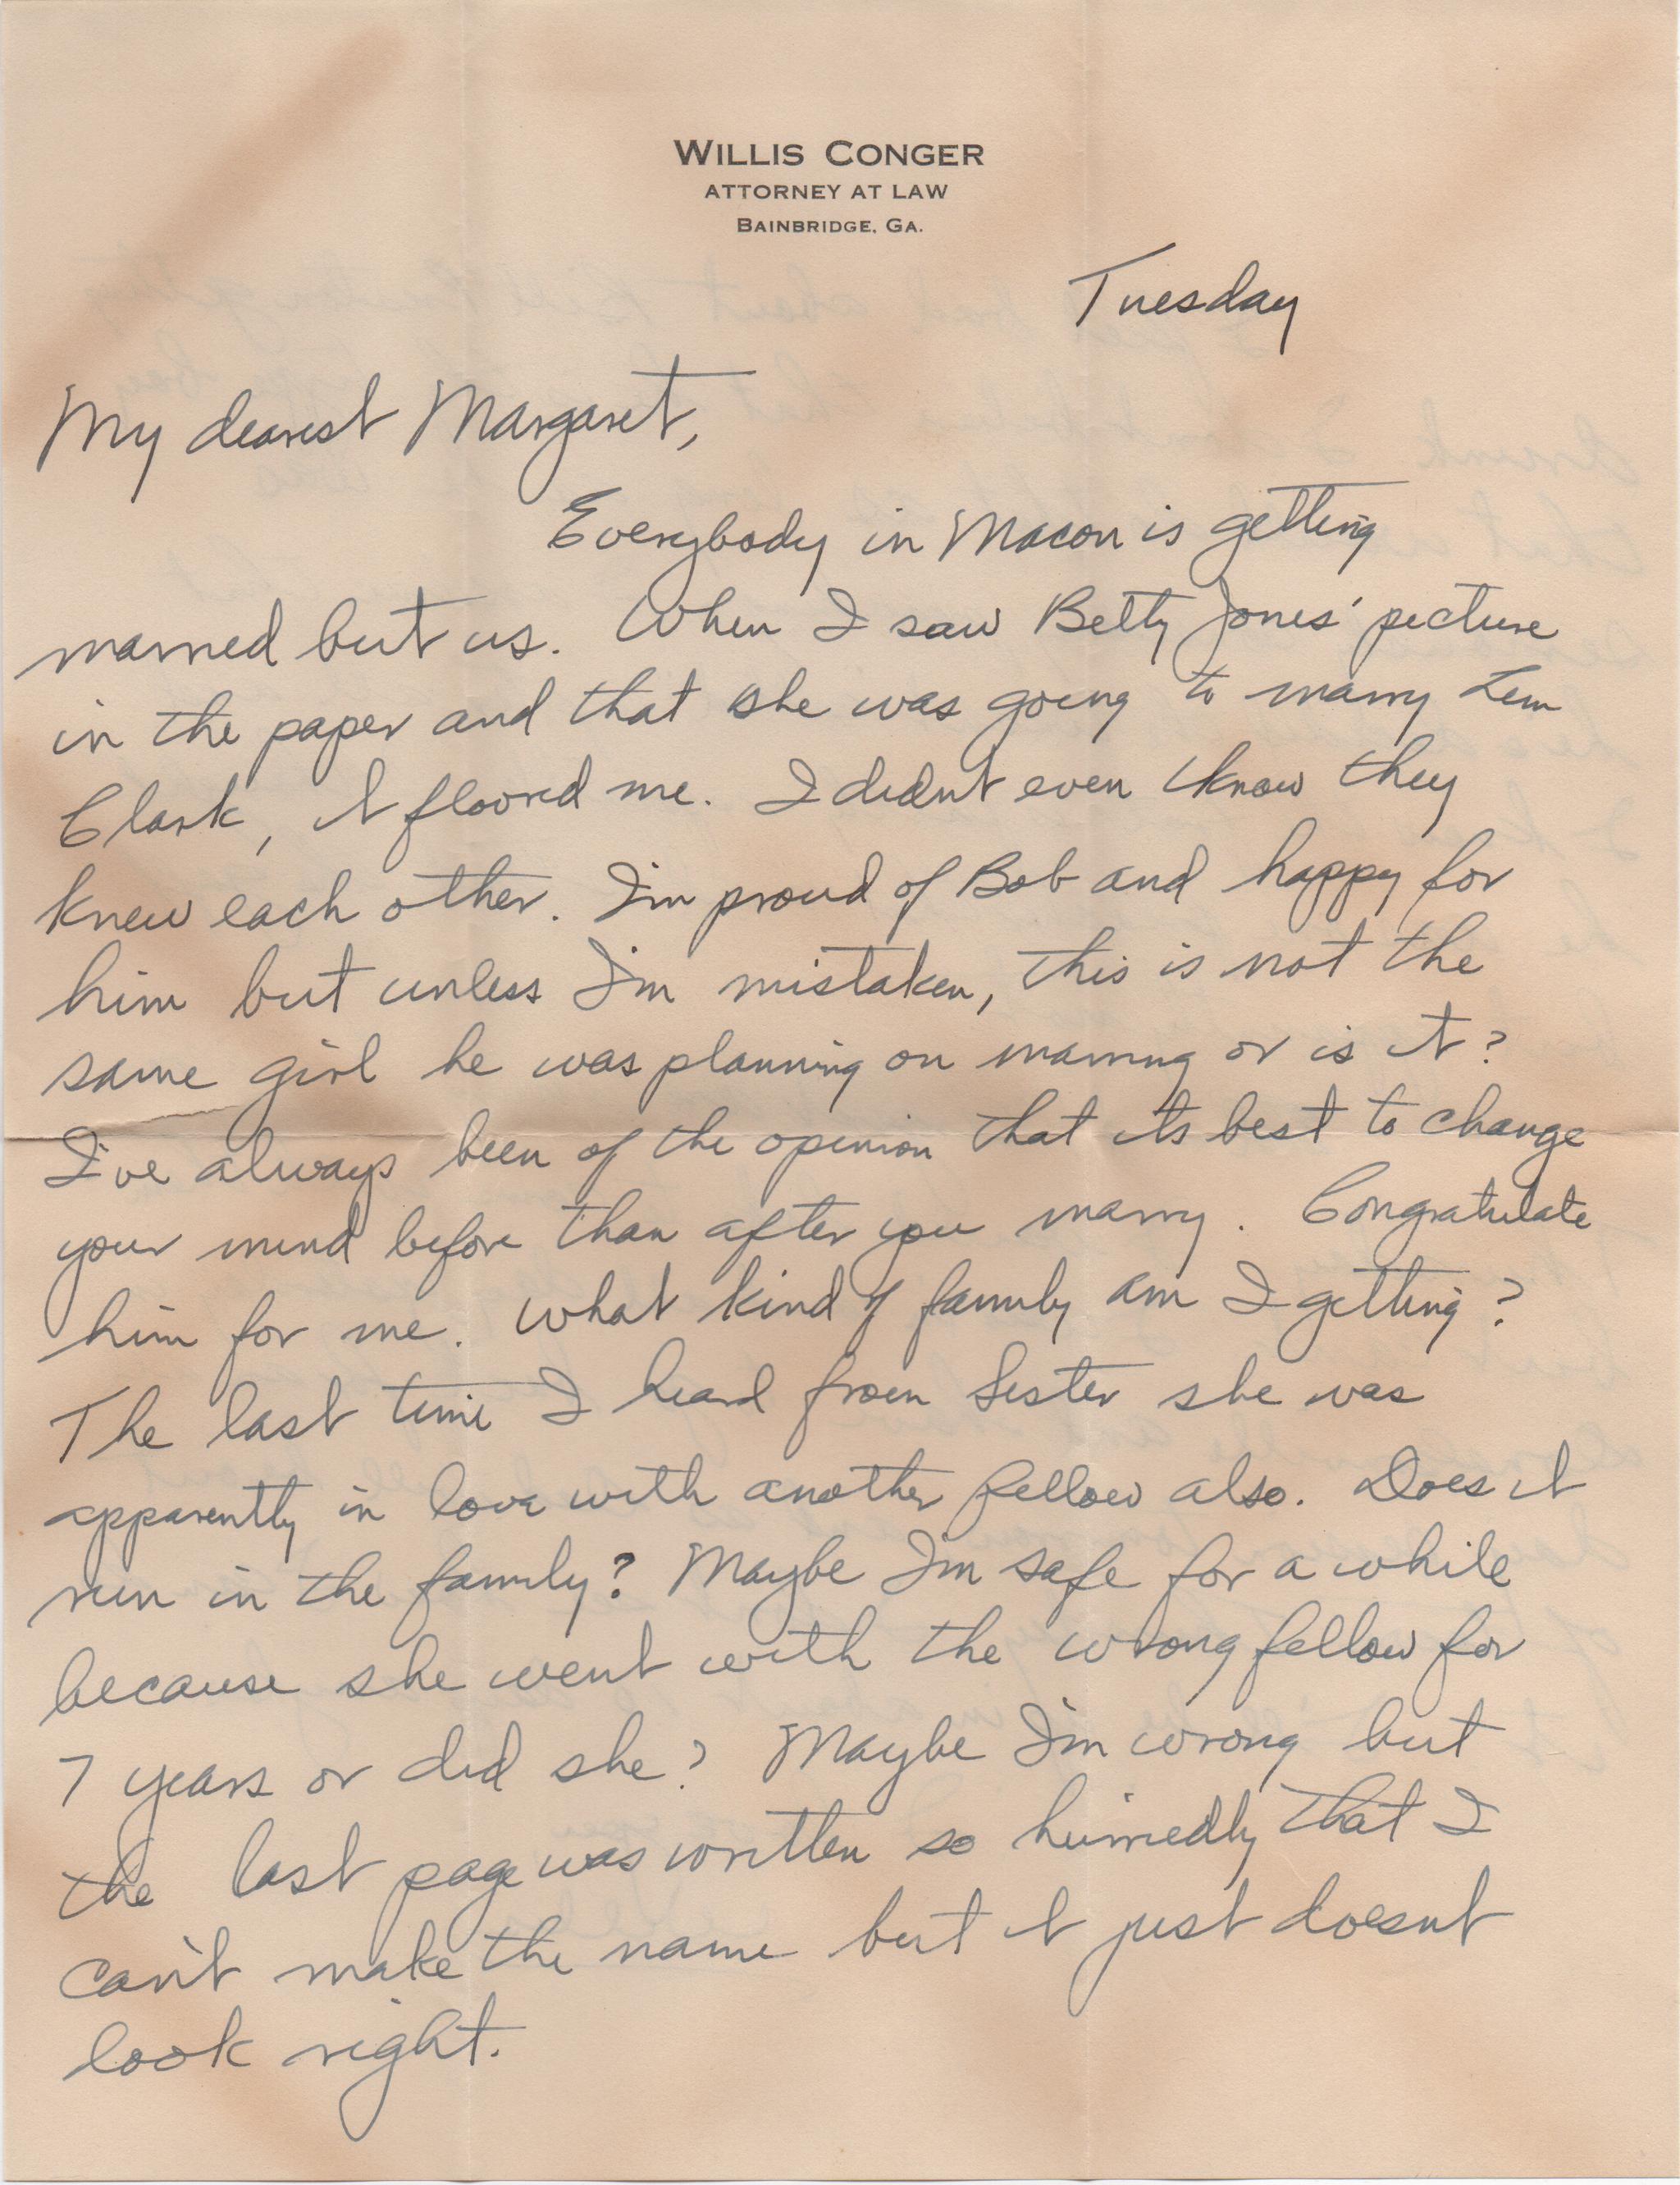 WILLIS CONGER
ATTORNEY AT LAW
BAINBRIDGE, GA.
Tuesday
My dearest Margaret,
Everybody in Macon is getting
married but us. When I saw Betty Jones' picture
in the paper and that she was going to marry Lem
Clark, it floored me. I didn't even know they
knew each other. I'm proud of Bob and happy for
him but unless I'm mistaken, this is not the
same girl he was planning on marrying or is it?
I've always been of the opinion that its best to change
your mind before than after you marry. Congratulate
him for me. What kind of family am I getting?
The last time I heard from Sister she was
apparently in love with another fellow also. Does it
run in the family? Maybe I'm safe for a while
because she went with the wrong fellow for
7 years or did she? Maybe I'm wrong but
the last page was written so hurriedly that I
can't make the name but it just doesnt
look right.